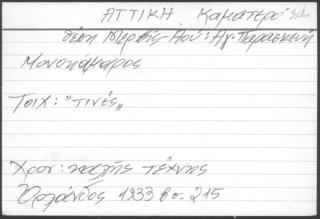 ΑΤΤΙΚΗ. Καματερό
θέση Μερτζις-Λού: Αγ. Παρασκευή
Μονοκάμαρος
Τοιχ: "τινές"
Χρον: καλής τέχνης
Ορλάνδος 1933 β σ. 215